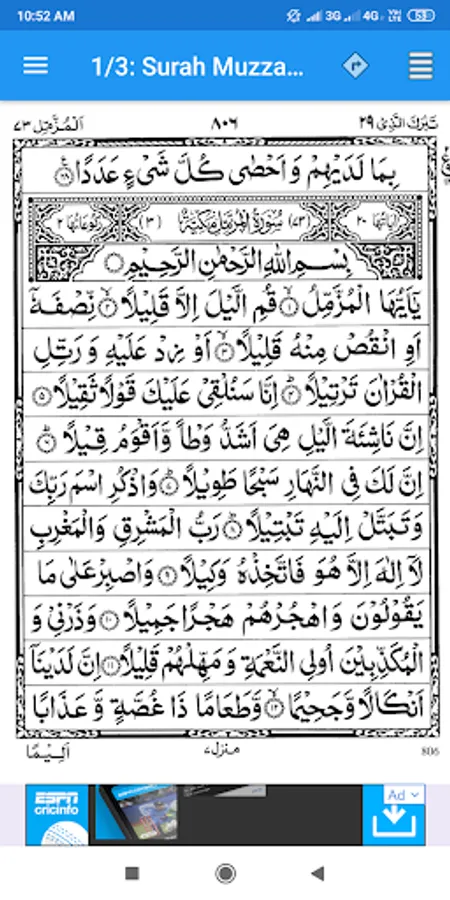 10:52 AM 3G 4G VoLTE 53
1/3: Surah Muzza...
تَبٰرَكَ الَّذِىْ ٢٩ ٨٠٦ اَلْمُزَّمِّل ٧٣
بِمَا لَدَيْهِمْ وَاَحْصٰى كُلَّ شَىْءٍ عَدَدًا ﴿٢٨﴾
اٰيَاتُهَا ٢٠ (٧٣) سُوْرَةُ الْمُزَّمِّلِ مَكِّيَّةٌ (٣) رُكُوْعَاتُهَا ٢
بِسْمِ اللّٰهِ الرَّحْمٰنِ الرَّحِيْمِ
يٰٓاَيُّهَا الْمُزَّمِّلُ ﴿١﴾ قُمِ الَّيْلَ اِلَّا قَلِيْلًا ﴿٢﴾ نِّصْفَهٗٓ
اَوِ انْقُصْ مِنْهُ قَلِيْلًا ﴿٣﴾ اَوْ زِدْ عَلَيْهِ وَرَتِّلِ
الْقُرْاٰنَ تَرْتِيْلًا ﴿٤﴾ اِنَّا سَنُلْقِىْ عَلَيْكَ قَوْلًا ثَقِيْلًا ﴿٥﴾
اِنَّ نَاشِئَةَ الَّيْلِ هِىَ اَشَدُّ وَطْاً وَّاَقْوَمُ قِيْلًا ﴿٦﴾
اِنَّ لَكَ فِى النَّهَارِ سَبْحًا طَوِيْلًا ﴿٧﴾ وَاذْكُرِ اسْمَ رَبِّكَ
وَتَبَتَّلْ اِلَيْهِ تَبْتِيْلًا ﴿٨﴾ رَبُّ الْمَشْرِقِ وَالْمَغْرِبِ
لَآ اِلٰهَ اِلَّا هُوَ فَاتَّخِذْهُ وَكِيْلًا ﴿٩﴾ وَاصْبِرْ عَلٰى مَا
يَقُوْلُوْنَ وَاهْجُرْهُمْ هَجْرًا جَمِيْلًا ﴿١٠﴾ وَذَرْنِىْ وَ
الْمُكَذِّبِيْنَ اُولِى النَّعْمَةِ وَمَهِّلْهُمْ قَلِيْلًا ﴿١١﴾ اِنَّ لَدَيْنَآ
اَنْكَالًا وَّجَحِيْمًا ﴿١٢﴾ وَّطَعَامًا ذَا غُصَّةٍ وَّعَذَابًا
806 منزل ٧ اَلِيْمًا
ESPN
cricinfo
Ad